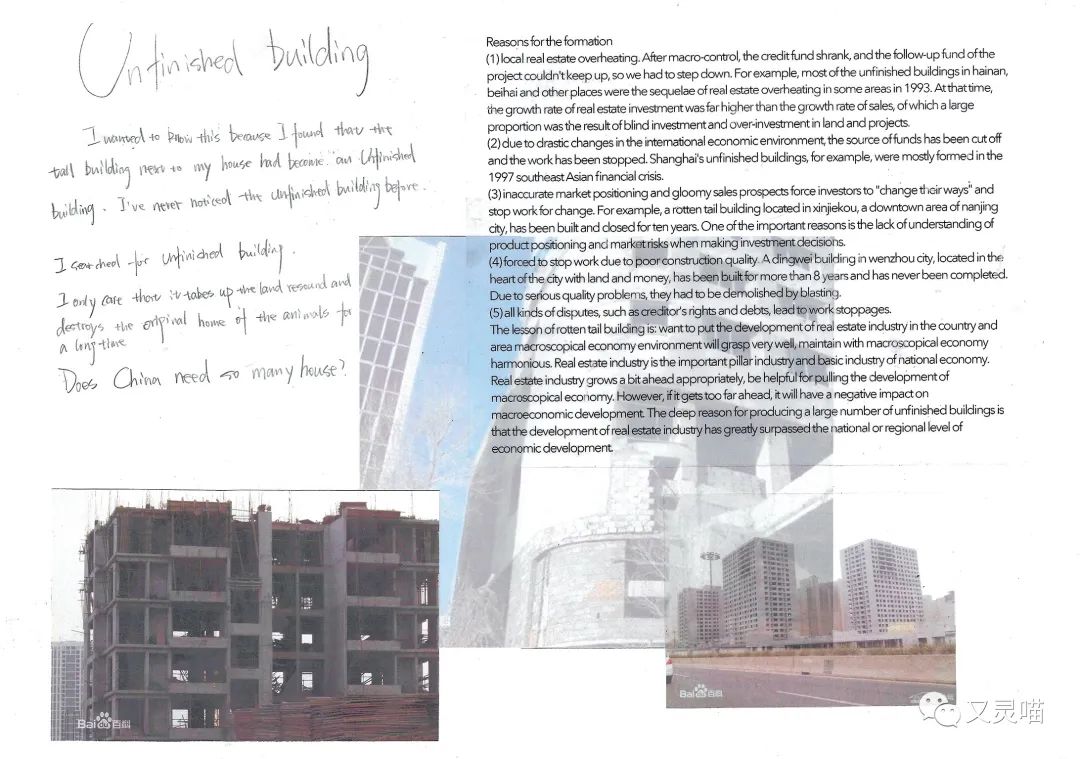 Unfinished building
I wanted to know this because I found that the
tall building next to my house had become an Unfinished
building. I've never noticed the unfinished building before.
I searched for unfinished building.
I only care that it takes up the land resound and
destroys the original home of the animals for
a long time
Does China need so many house?
Reasons for the formation
(1) local real estate overheating. After macro-control, the credit fund shrank, and the follow-up fund of the
project couldn't keep up, so we had to step down. For example, most of the unfinished buildings in hainan,
beihai and other places were the sequelae of real estate overheating in some areas in 1993. At that time,
the growth rate of real estate investment was far higher than the growth rate of sales, of which a large
proportion was the result of blind investment and over-investment in land and projects.
(2) due to drastic changes in the international economic environment, the source of funds has been cut off
and the work has been stopped. Shanghai's unfinished buildings, for example, were mostly formed in the
1997 southeast Asian financial crisis.
(3) inaccurate market positioning and gloomy sales prospects force investors to "change their ways" and
stop work for change. For example, a rotten tail building located in xinjiekou, a downtown area of nanjing
city, has been built and closed for ten years. One of the important reasons is the lack of understanding of
product positioning and market risks when making investment decisions.
(4) forced to stop work due to poor construction quality. A dingwei building in wenzhou city, located in the
heart of the city with land and money, has been built for more than 8 years and has never been completed.
Due to serious quality problems, they had to be demolished by blasting.
(5) all kinds of disputes, such as creditor's rights and debts, lead to work stoppages.
The lesson of rotten tail building is: want to put the development of real estate industry in the country and
area macroscopical economy environment will grasp very well, maintain with macroscopical economy
harmonious. Real estate industry is the important pillar industry and basic industry of national economy.
Real estate industry grows a bit ahead appropriately, be helpful for pulling the development of
macroscopical economy. However, if it gets too far ahead, it will have a negative impact on
macroeconomic development. The deep reason for producing a large number of unfinished buildings is
that the development of real estate industry has greatly surpassed the national or regional level of
economic development.
Bai百科
Bai百科
又灵喵